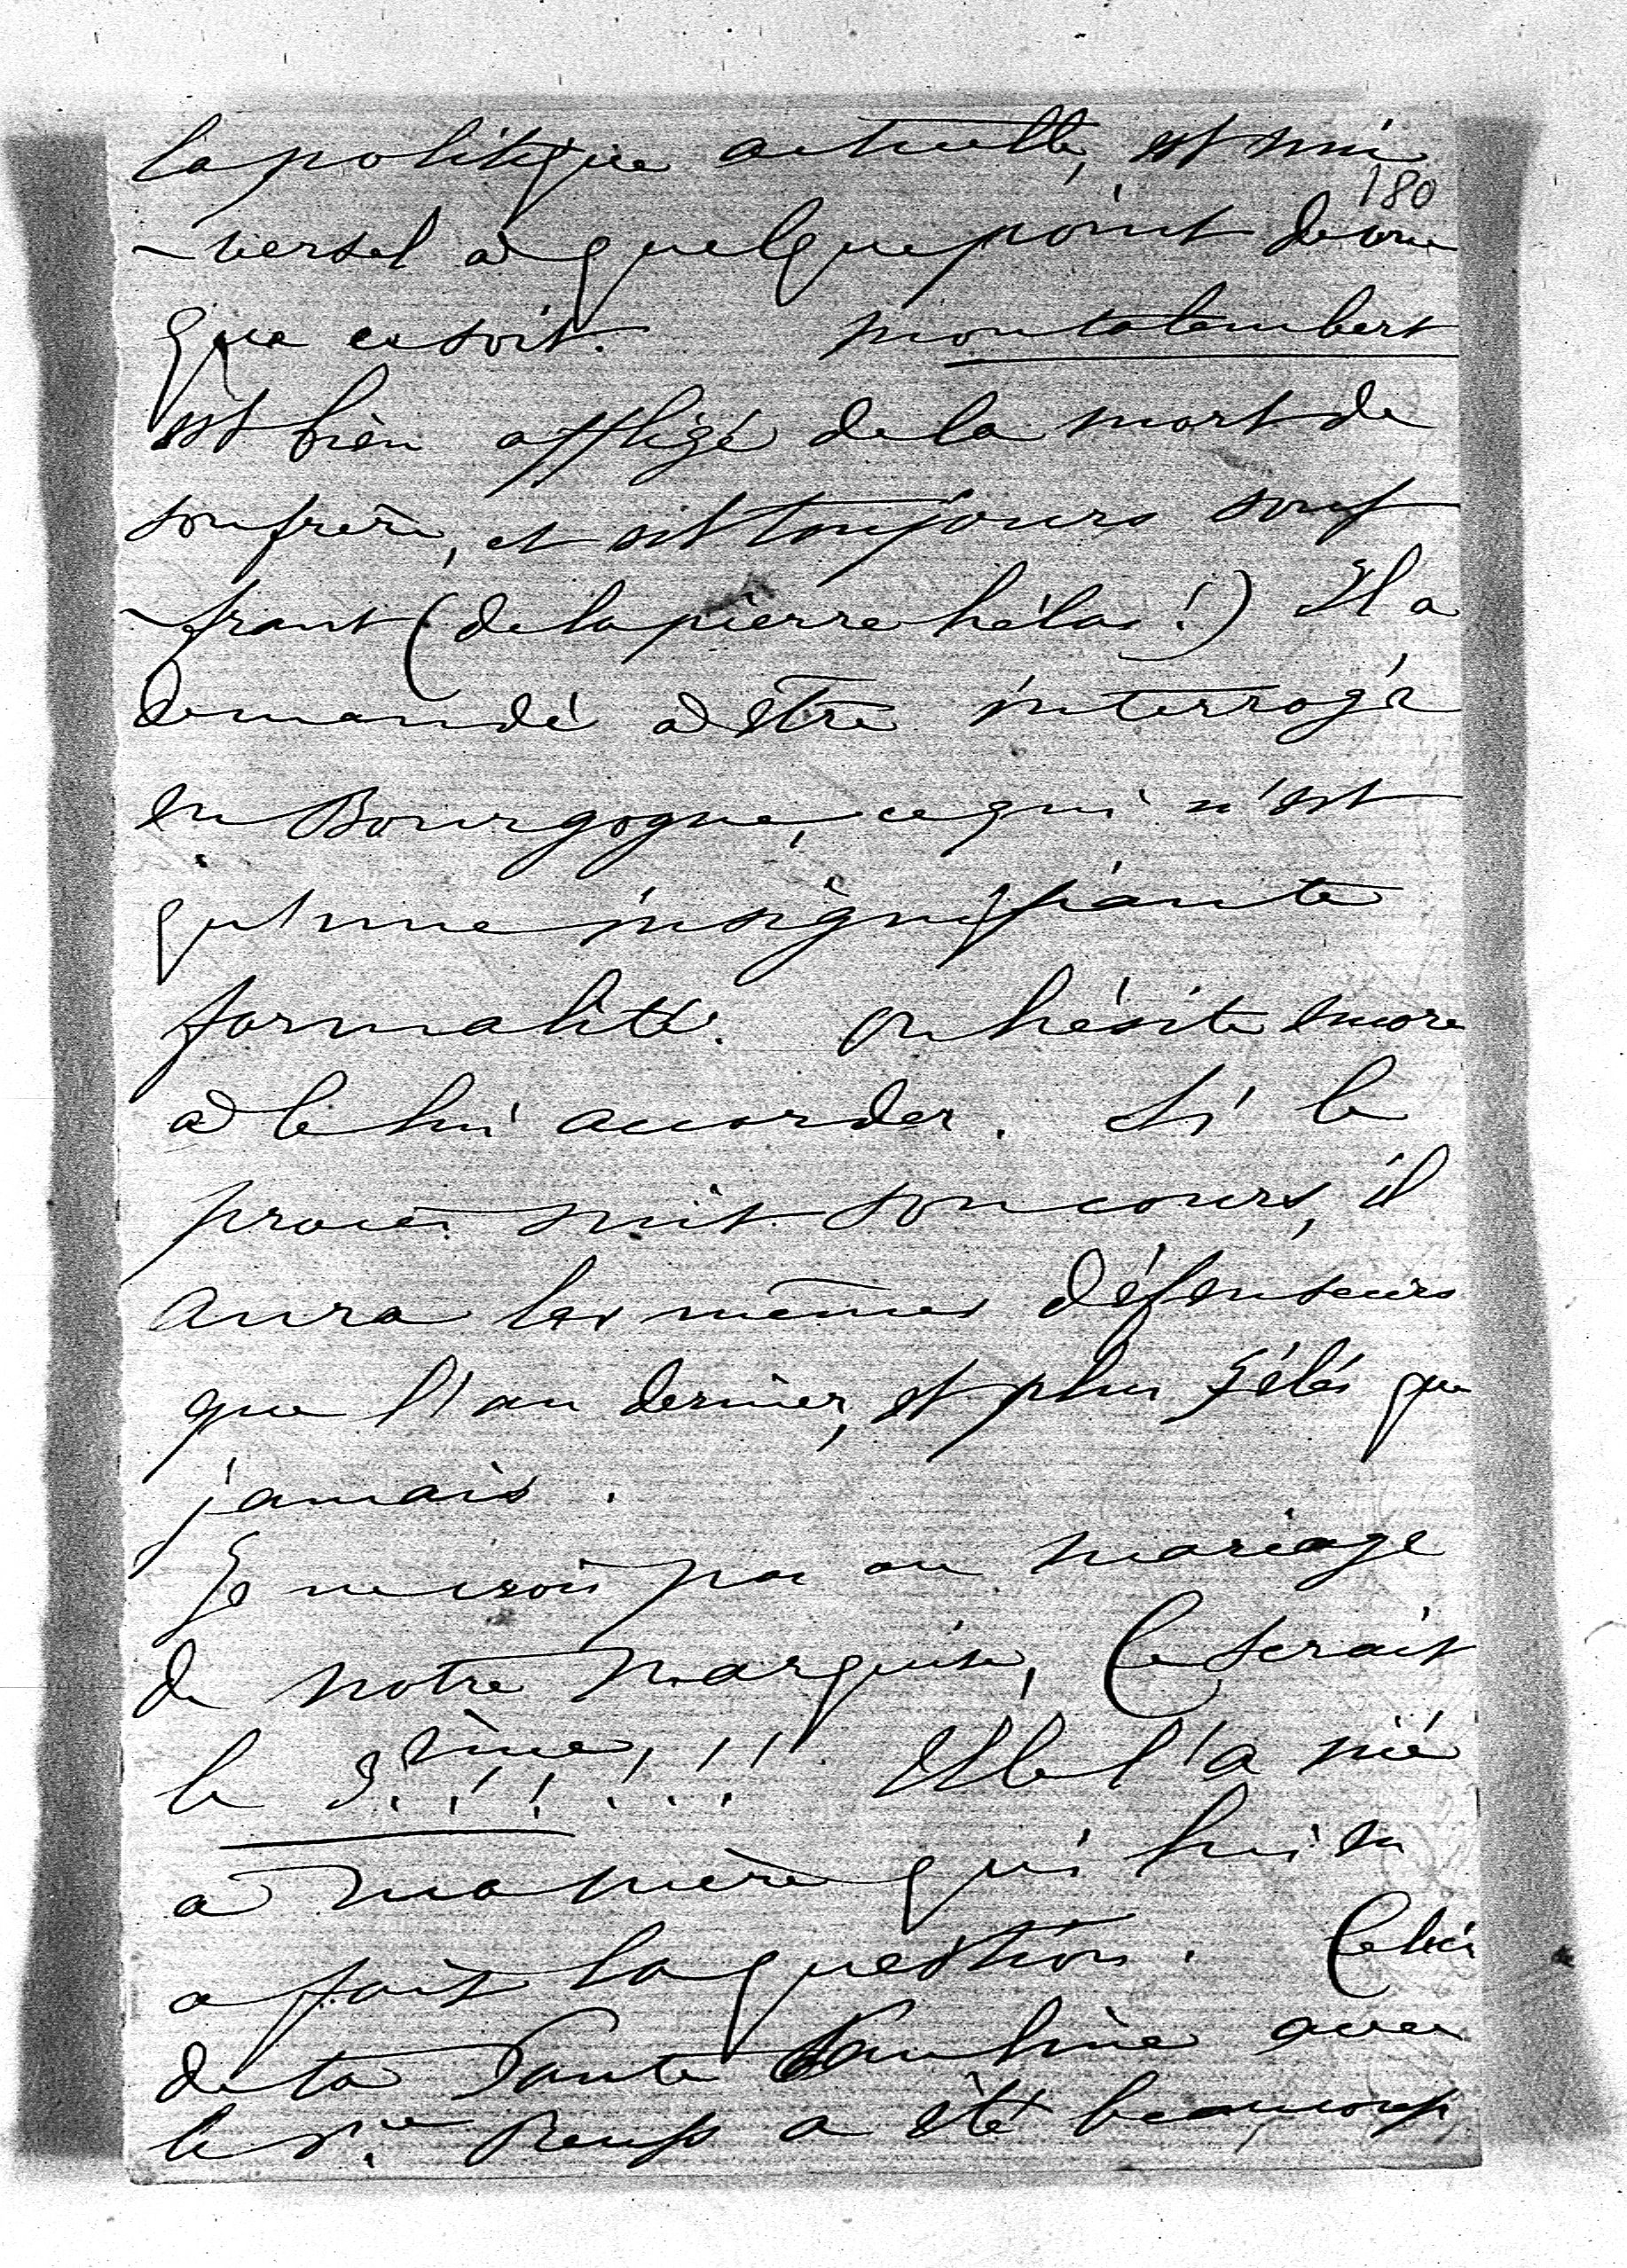 la politique actuelle, est uni
180
-versel à quelque point de vue
que ce soit. Montalembert
est bien affligé de la mort de
son frère, et est toujours souf
-frant (de la pierre hélas!) Il a
demandé à être interrogé
en Bourgogne, ce qui n'est
qu'une insignifiante
formalité. On hésite encore
à le lui accorder. Si le
procès suit son cours, il
aura les mêmes défenseurs
que l'an dernier, et plus zélés que
jamais.
Je ne crois pas au mariage
de notre marquise, Ce serait
le 3ème!!!!!!! Elle l'a nié
à ma mère qui lui en
a fait la question. Celui
de ta Tante Pauline avec
le Pce Reuss a été beaucoup